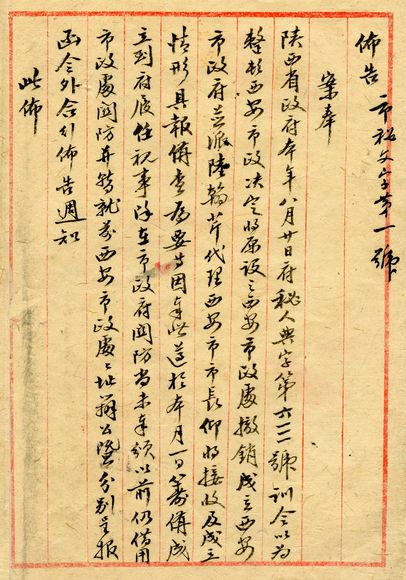 佈告 市秘文字第一號
案奉
陝西省政府本年八月廿日府秘人典字第六二二號訓令以為
整頓西安市政决定將原設之西安市政處撤銷成立西安
市政府並派陸翰芹代理西安市市長仰將接收及成立
情形具報備查為要等因奉此遵於本月一日籌備成
立到府接任視事除在市政府關防尚未奉頒以前仍借用
市政處關防并暫就前西安市政處處址辦公暨分别呈報
函令外合行佈告週知
此佈